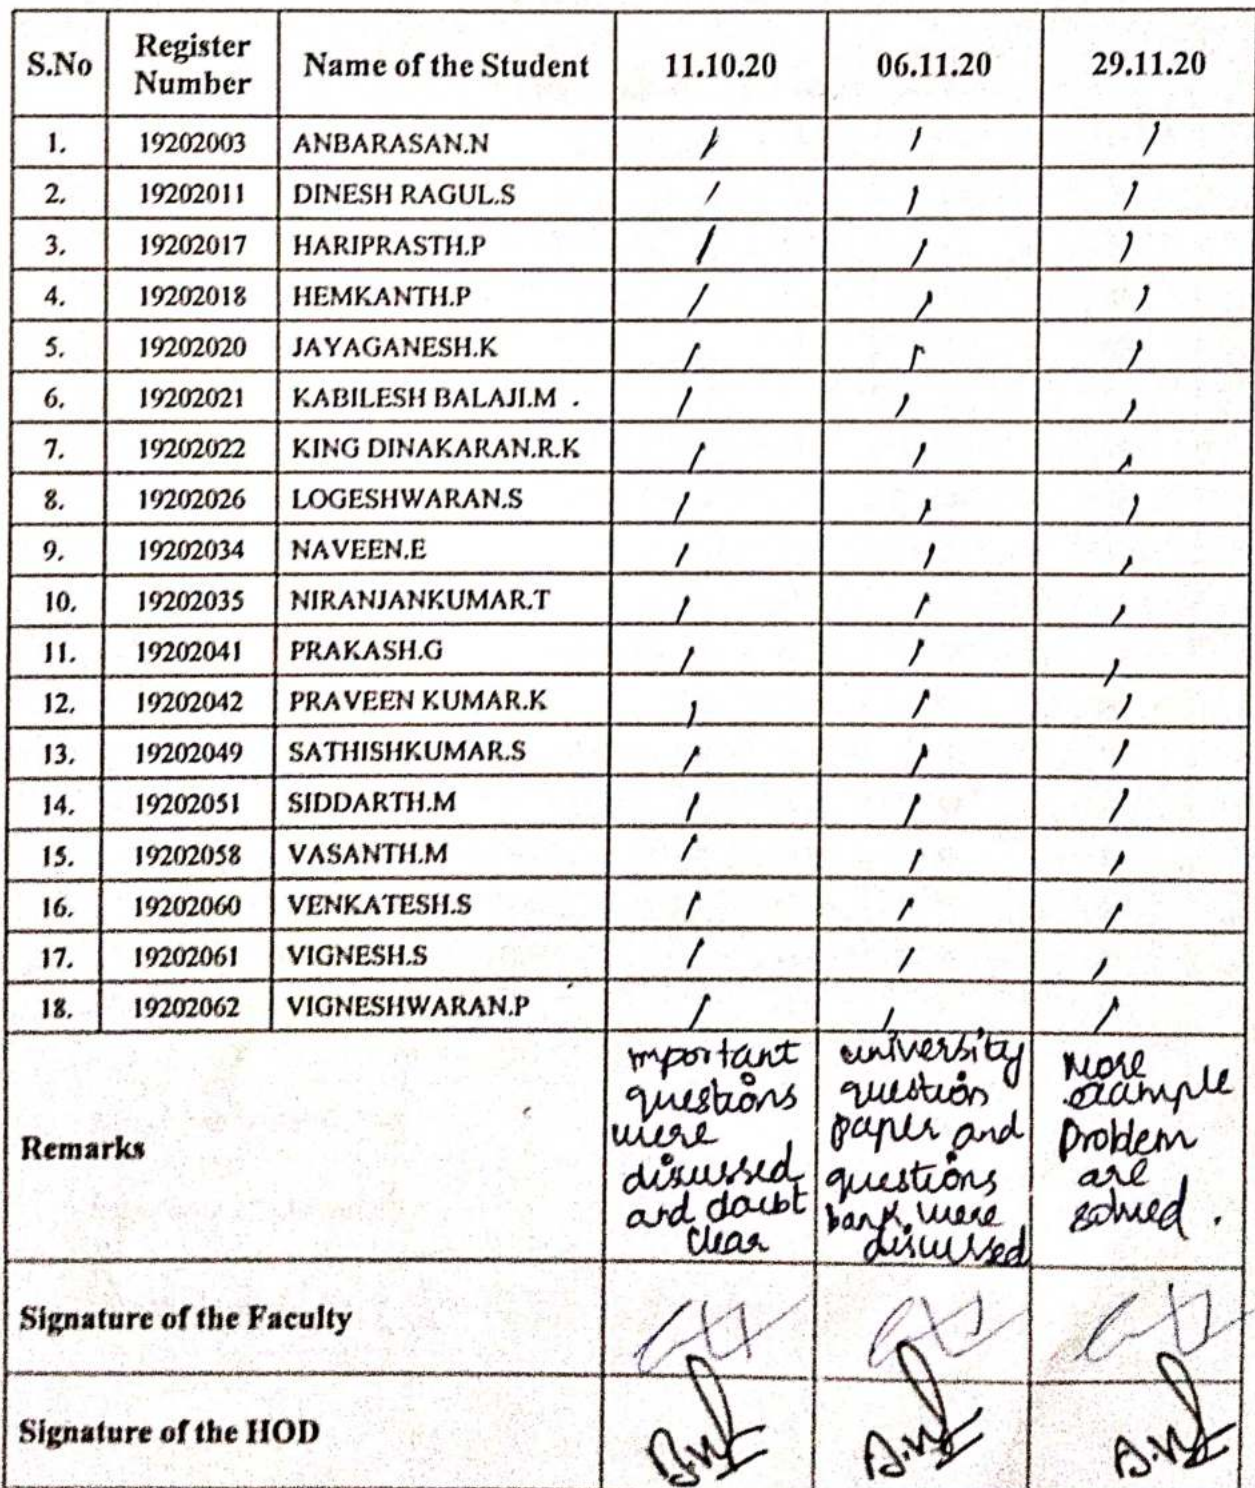 S.No Register Number Name of the Student 11.10.20 06.11.20 29.11.20
1. 19202003 ANBARASAN.N / / /
2. 19202011 DINESH RAGUL.S / / /
3. 19202017 HARIPRASTH.P / / /
4. 19202018 HEMKANTH.P / / /
5. 19202020 JAYAGANESH.K / / /
6. 19202021 KABILESH BALAJI.M . / / /
7. 19202022 KING DINAKARAN.R.K / / /
8. 19202026 LOGESHWARAN.S / / /
9. 19202034 NAVEEN.E / / /
10. 19202035 NIRANJANKUMAR.T / / /
11. 19202041 PRAKASH.G / / /
12. 19202042 PRAVEEN KUMAR.K / / /
13. 19202049 SATHISHKUMAR.S / / /
14. 19202051 SIDDARTH.M / / /
15. 19202058 VASANTH.M / / /
16. 19202060 VENKATESH.S / / /
17. 19202061 VIGNESH.S / / /
18. 19202062 VIGNESHWARAN.P / / /
Remarks
important
questions
were
discussed
and doubt
clear
university
question
paper and
questions
bank were
discussed
More
example
problem
are
solved .
Signature of the Faculty
Signature of the HOD